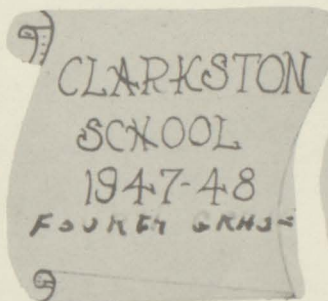 CLARKSTON
SCHOOL
1947-48
FOURTH GRADE